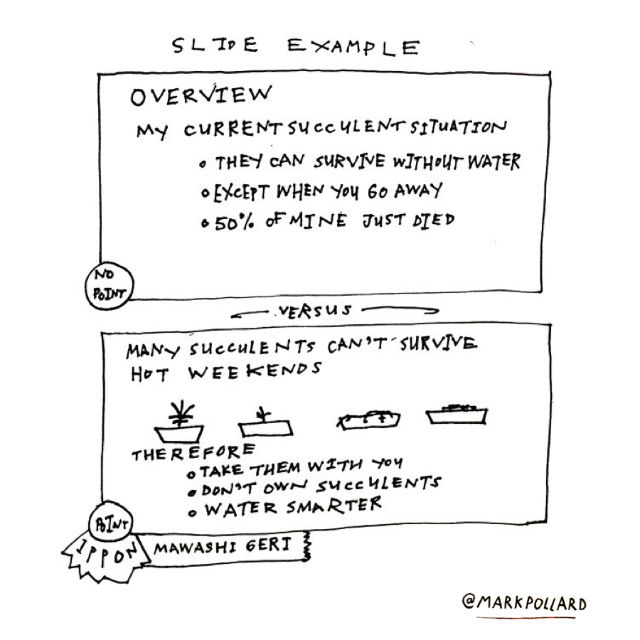 SLIDE EXAMPLE
OVERVIEW
MY CURRENT SUCCULENT SITUATION
• THEY CAN SURVIVE WITHOUT WATER
• EXCEPT WHEN YOU GO AWAY
• 50% OF MINE JUST DIED
NO
POINT
VERSUS
MANY SUCCULENTS CAN'T SURVIVE
HOT WEEKENDS
THEREFORE
• TAKE THEM WITH YOU
• DON'T OWN SUCCULENTS
• WATER SMARTER
POINT
IPPON
MAWASHI GERI
@MARKPOLLARD